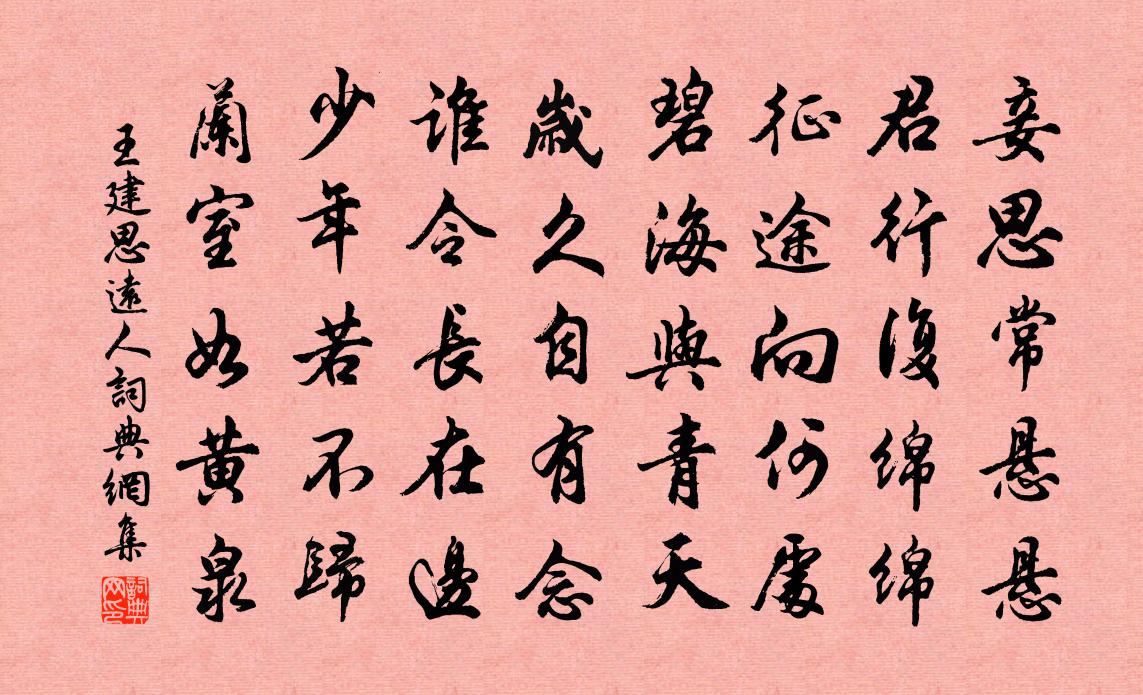 妾思常悬悬
君行復绵绵
征途向何處
碧海與青天
歲久自有念
誰令長在邊
少年若不歸
蘭室如黄泉
王建思遠人詞典網集
詞典网印